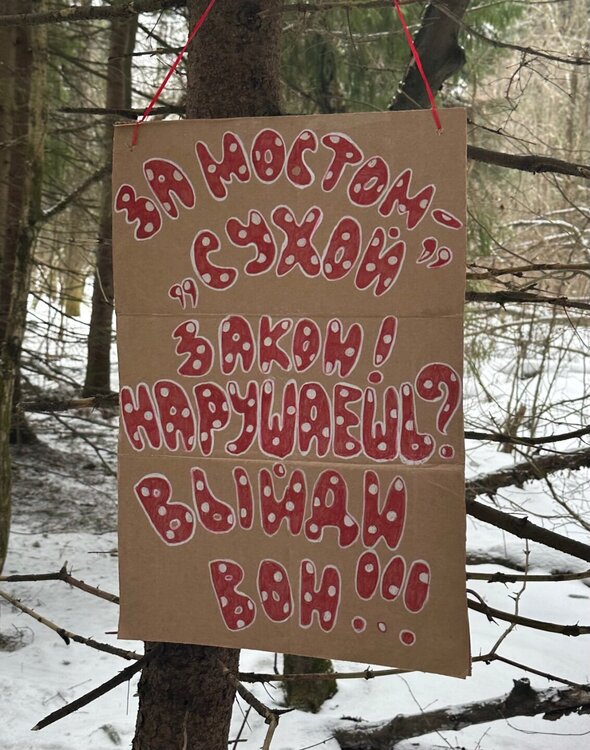 ЗА МОСТОМ-
„СУХОЙ”
ЗАКОН!
НАРУШАЕШЬ?
ВЫЙДИ
ВОН!!!